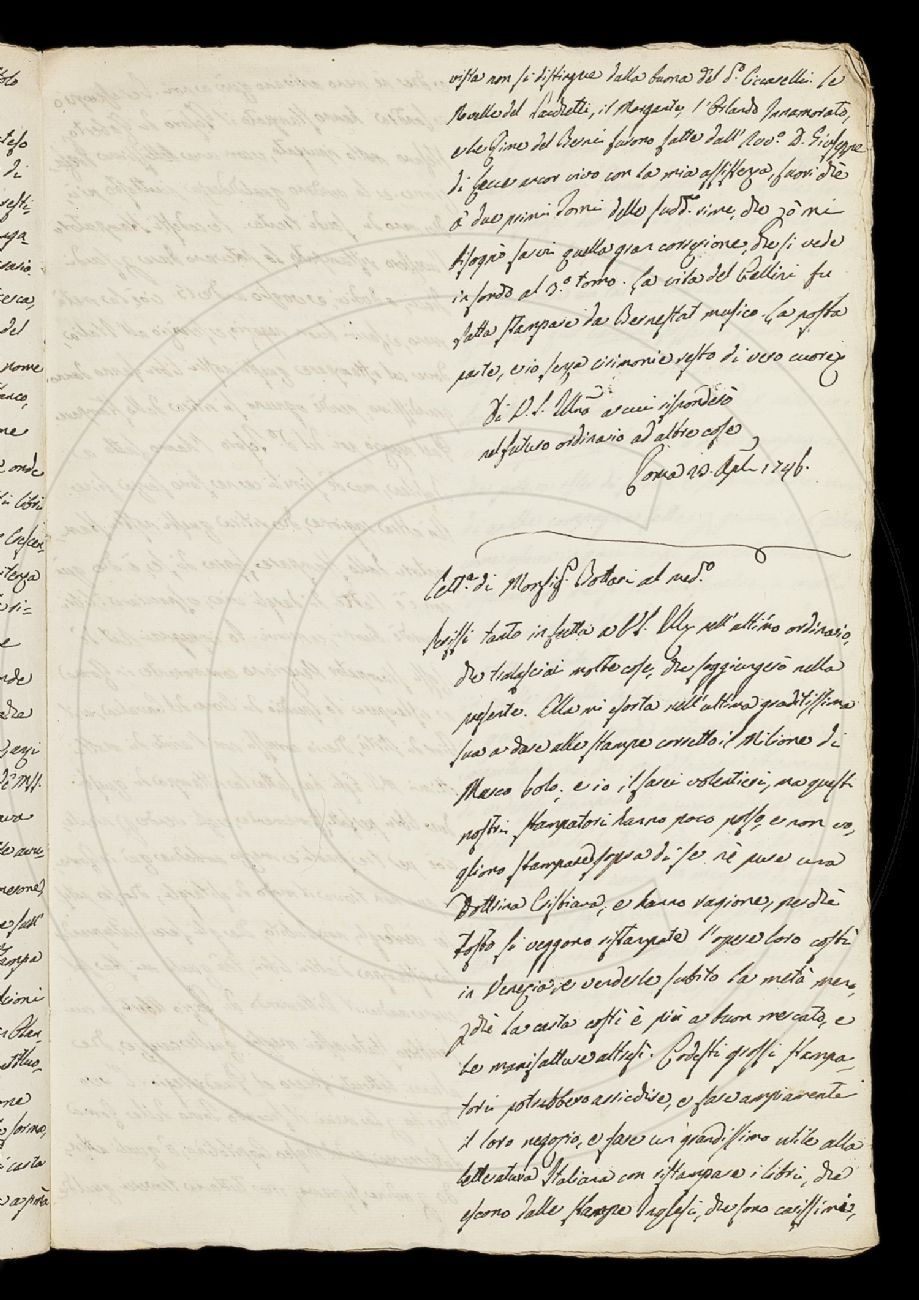 olo
teso
di
resti-
esca,
del
nome
ne
onde
i libri
Crescen
itenza
si=
e
nde
ava
ne
forma,
carta
vista non si distingue dalla buona del d.º Ciccarelli. Le
Novelle del Sacchetti, il Morgante, l'Orlando Innamorato,
e le Rime del Berni furono fatte dall'Avv.º D. Giuseppe
di Lecce ancor vivo con la mia assistenza, fuori che
à due primi Tomi delle sudd.e rime, che pò mi
bisognò farvi quella gran correzione, che si vede
in fondo al 3.º Tomo. La vita del Cellini fu
fatta stampare da Bernestat musico. La posta
parte, e io senza cirimonie resto di vero cuore
Di V. S. Ill.ma a cui risponderò
nel futuro ordinario ad altre cose
Roma 23. Aple 1746.
Lett.ª di Monsig.r Bottari al med.º
Scrissi tanto in fretta a V. S. Ill.ma nell'ultimo ordinario,
che tralasciai molte cose, che soggiungerò nella
presente. Ella mi esorta nell'ultima graditissima
sua a dare alle stampe corretto il Milione di
Marco Polo, e io il farei volentieri, ma questi
nostri Stampatori hanno poco polso, e non vo,
gliono stampare sopra di se nè pure una
Dottrina Cristiana, e hanno ragione, perchè
tosto si veggono ristampate l'opere loro costì
in Venezia, e venderle subito la metà meno,
pchè la carta costì è più a buon mercato, e
le manifatture altresì. Codesti grossi Stampa-
tori potrebbero arricchire, e fare ampiamente
il loro negozio, e fare un grandissimo utile alla
letteratura Italiana con ristampare i libri, che
escono dalle stampe Inglesi, che sono carissimi,